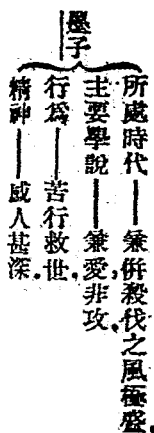 墨子
所處時代——兼併殺伐之風極盛.
主要學說——兼愛非攻.
行爲——苦行救世.
精神——感人甚深.